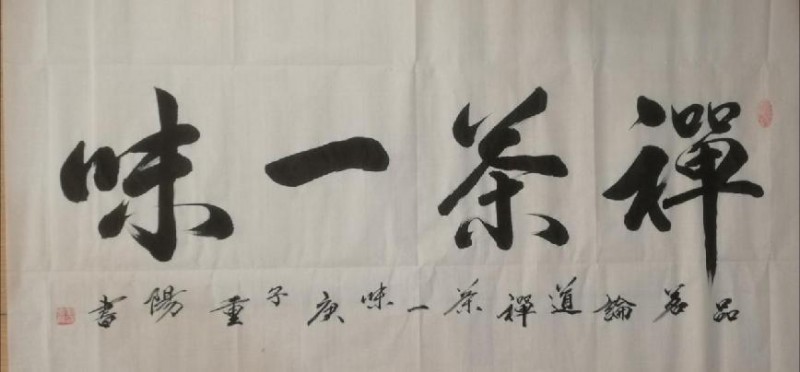 禪茶一味
品茗論道禪茶一味庚子重陽書